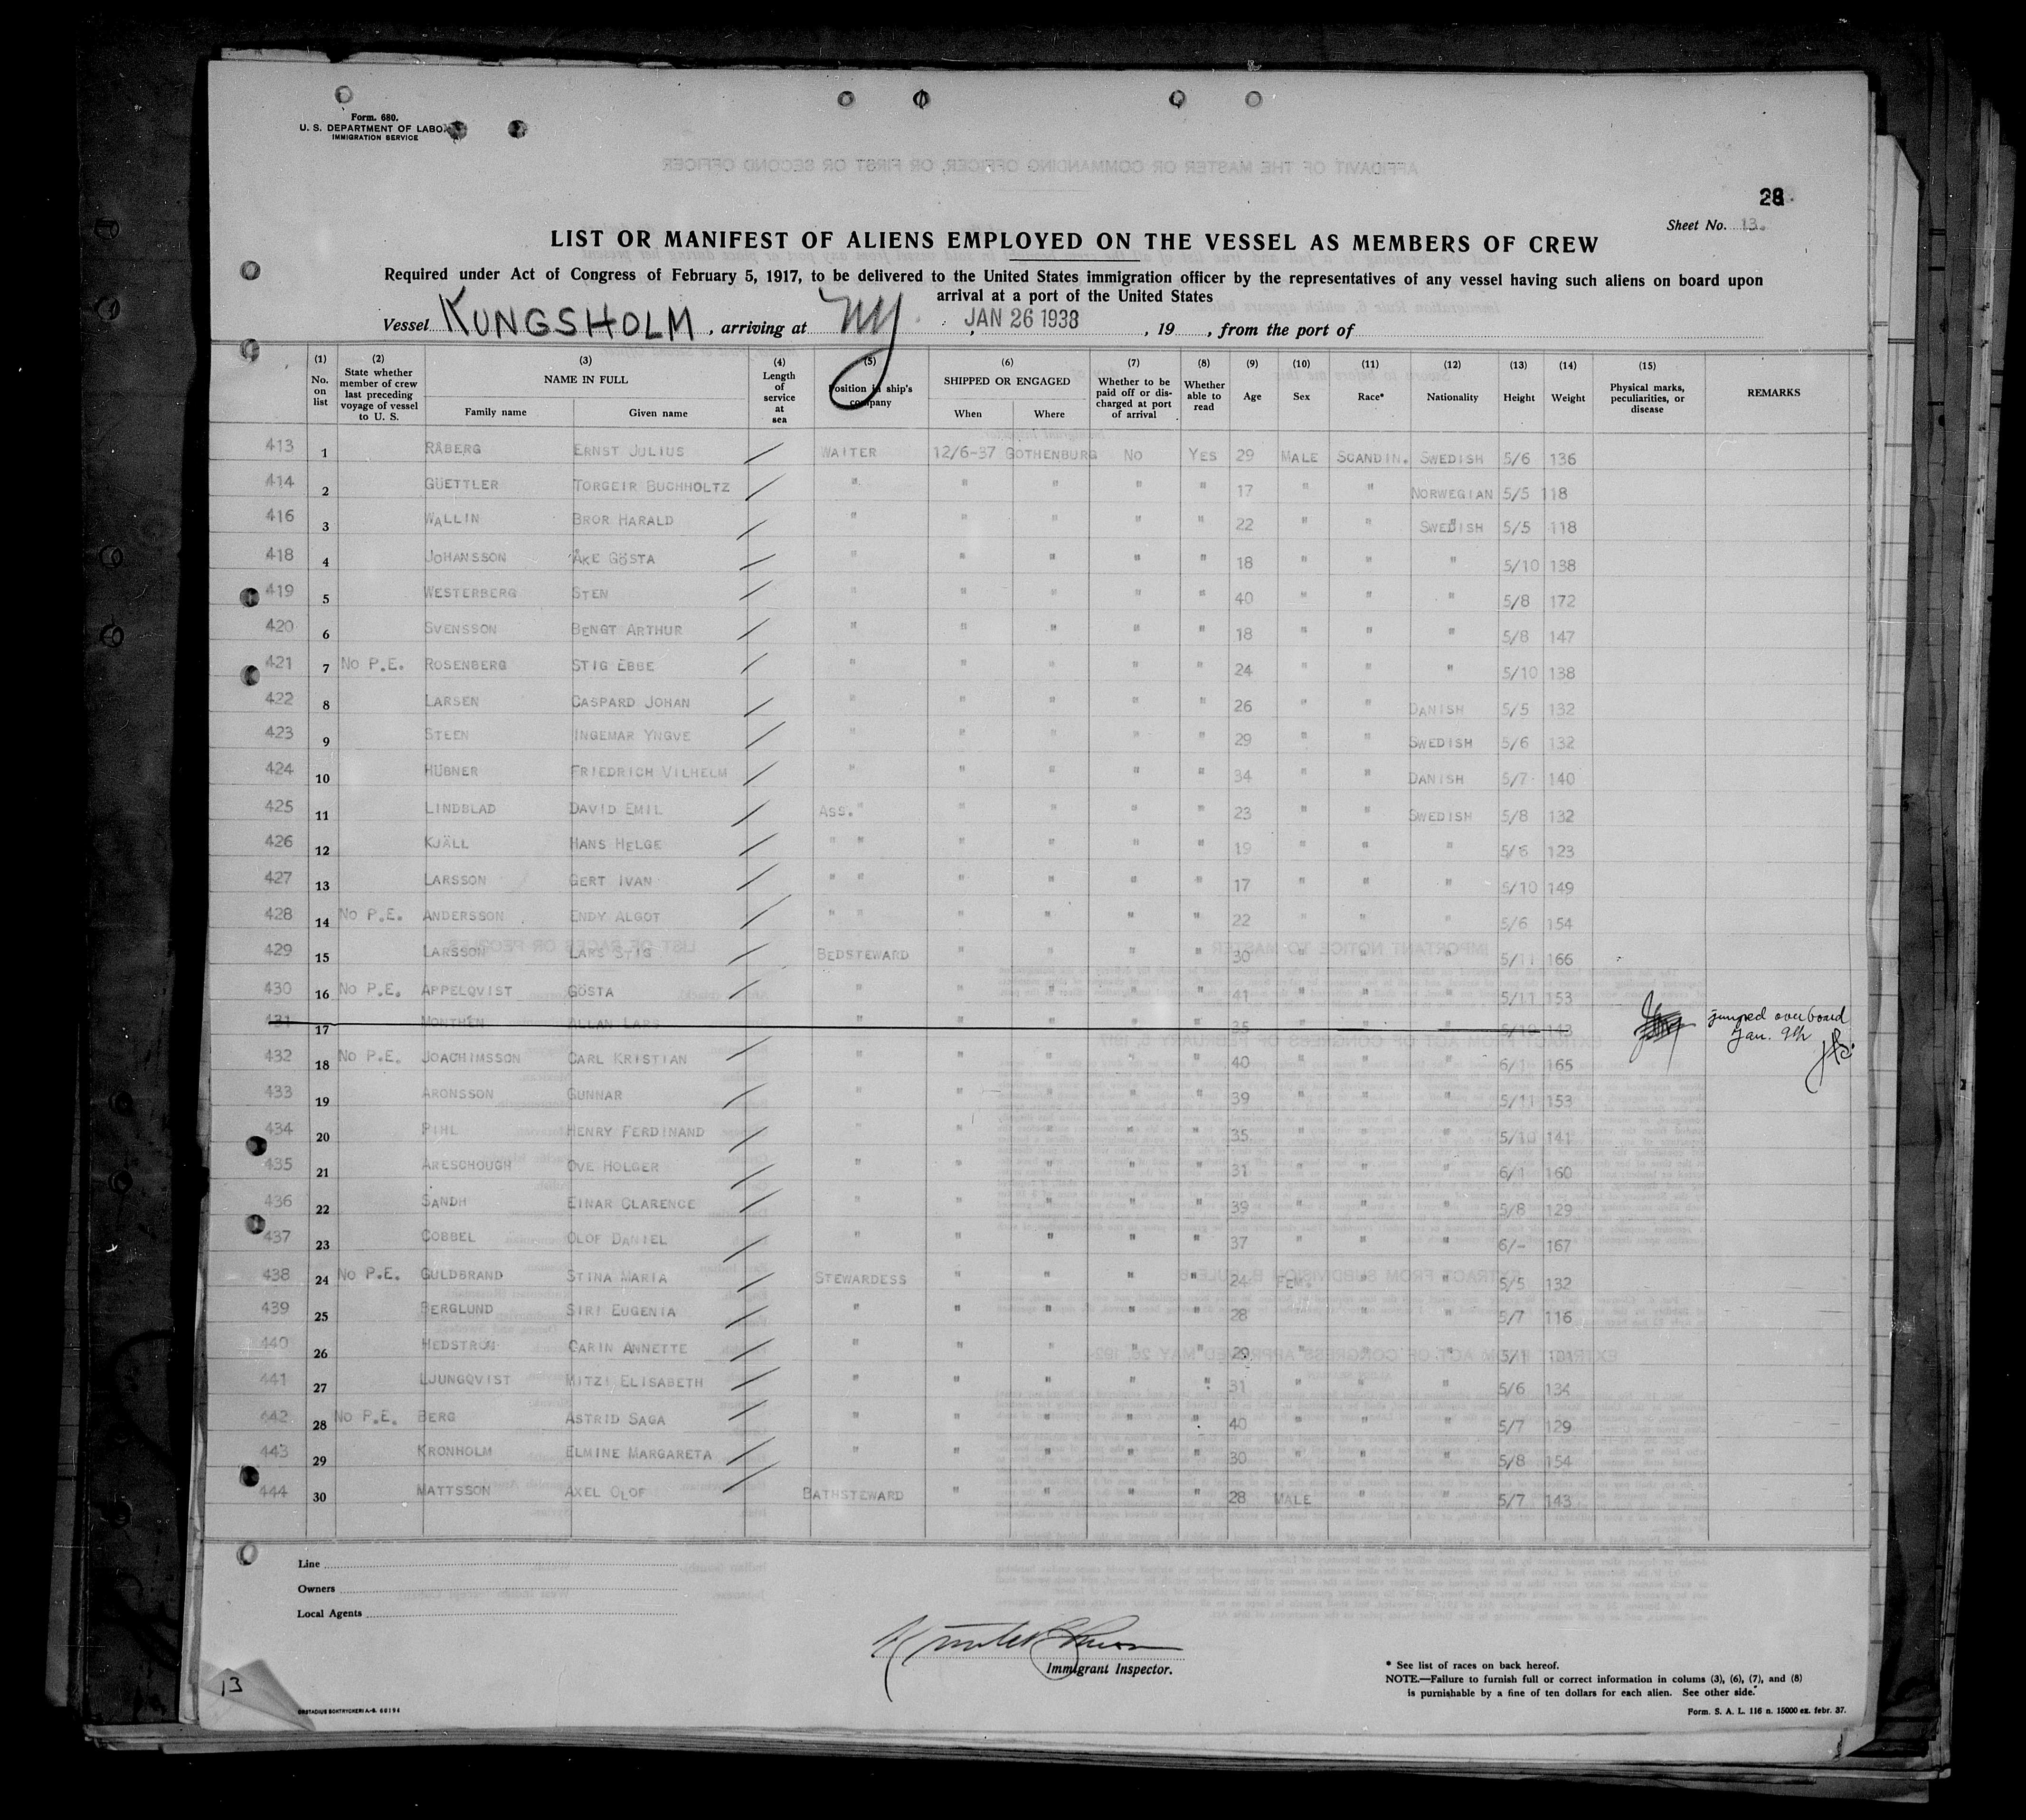 Form. 680.
U. S. DEPARTMENT OF LABO
IMMIGRATION SERVICE
28
Sheet No. 13.
LIST OR MANIFEST OF ALIENS EMPLOYED ON THE VESSEL AS MEMBERS OF CREW
Required under Act of Congress of February 5, 1917, to be delivered to the United States immigration officer by the representatives of any vessel having such aliens on board upon
arrival at a port of the United States
Vessel KUNGSHOLM, arriving at NY, JAN 26 1938, 19, from the port of
(1) No. on list (2) State whether member of crew last preceding voyage of vessel to U. S. (3) NAME IN FULL Family name Given name (4) Length of service at sea (5) Position in ship's company (6) SHIPPED OR ENGAGED When Where (7) Whether to be paid off or discharged at port of arrival (8) Whether able to read (9) Age (10) Sex (11) Race* (12) Nationality (13) Height (14) Weight (15) Physical marks, peculiarities, or disease REMARKS
413 1 RÅBERG ERNST JULIUS / WAITER 12/6-37 GOTHENBURG No YES 29 MALE SCANDIN. SWEDISH 5/6 136
414 2 GÜETTLER TORGEIR BUCHHOLTZ / " " " " " 17 " " NORWEGIAN 5/5 118
416 3 WALLIN BROR HARALD / " " " " " 22 " " SWEDISH 5/5 118
418 4 JOHANSSON ÅKE GÖSTA / " " " " " 18 " " " 5/10 138
419 5 WESTERBERG STEN / " " " " " 40 " " " 5/8 172
420 6 SVENSSON BENGT ARTHUR / " " " " " 18 " " " 5/8 147
421 7 No P.E. ROSENBERG STIG EBBE / " " " " " 24 " " " 5/10 138
422 8 LARSEN CASPARD JOHAN / " " " " " 26 " " DANISH 5/5 132
423 9 STEEN INGEMAR YNGVE / " " " " " 29 " " SWEDISH 5/6 132
424 10 HÜBNER FRIEDRICH VILHELM / " " " " " 34 " " DANISH 5/7 140
425 11 LINDBLAD DAVID EMIL / ASS. " " " " " 23 " " SWEDISH 5/8 132
426 12 KJÄLL HANS HELGE / " " " " " " 19 " " " 5/6 123
427 13 LARSSON GERT IVAN / " " " " " " 17 " " " 5/10 149
428 14 No P.E. ANDERSSON ENDY ALGOT / " " " " " " 22 " " " 5/6 154
429 15 LARSSON LARS STIG / BEDSTEWARD " " " " 30 " " " 5/11 166
430 16 No P.E. APPELQVIST GÖSTA / " " " " " 41 " " " 5/11 153
431 17 MONTHÉN ALLAN LARS " " " " " 35 " " " 5/10 143 jumped overboard
Jan. 9th
432 18 No P.E. JOACHIMSSON CARL KRISTIAN / " " " " " 40 " " " 6/1 165
433 19 ARONSSON GUNNAR / " " " " " 39 " " " 5/11 153
434 20 PIHL HENRY FERDINAND / " " " " " 35 " " " 5/10 141
435 21 ARESCHOUGH OVE HOLGER / " " " " " 31 " " " 6/1 160
436 22 SANDH EINAR CLARENCE / " " " " " 39 " " " 5/8 129
437 23 COBBEL OLOF DANIEL / " " " " " 37 " " " 6/- 167
438 24 No P.E. GULDBRAND STINA MARIA / STEWARDESS " " " " 24 FEM. " " 5/5 132
439 25 BERGLUND SIRI EUGENIA / " " " " " 28 " " " 5/7 116
440 26 HEDSTRÖM CARIN ANNETTE / " " " " " 29 " " " 5/1 101
441 27 LJUNGQVIST MITZI ELISABETH / " " " " " 31 " " " 5/6 134
442 28 No P.E. BERG ASTRID SAGA / " " " " " 40 " " " 5/7 129
443 29 KRONHOLM ELMINE MARGARETA / " " " " " 30 " " " 5/8 154
444 30 MATTSSON AXEL OLOF / BATHSTEWARD " " " " 28 MALE " " 5/7 143
Line
Owners
Local Agents
Immigrant Inspector.
* See list of races on back hereof.
NOTE.—Failure to furnish full or correct information in colums (3), (6), (7), and (8)
is purnishable by a fine of ten dollars for each alien. See other side.
13
ORSTADIUS BOKTRYCKERI A.-B. 66194
Form. S. A. L. 116 n. 15000 ex. febr. 37.